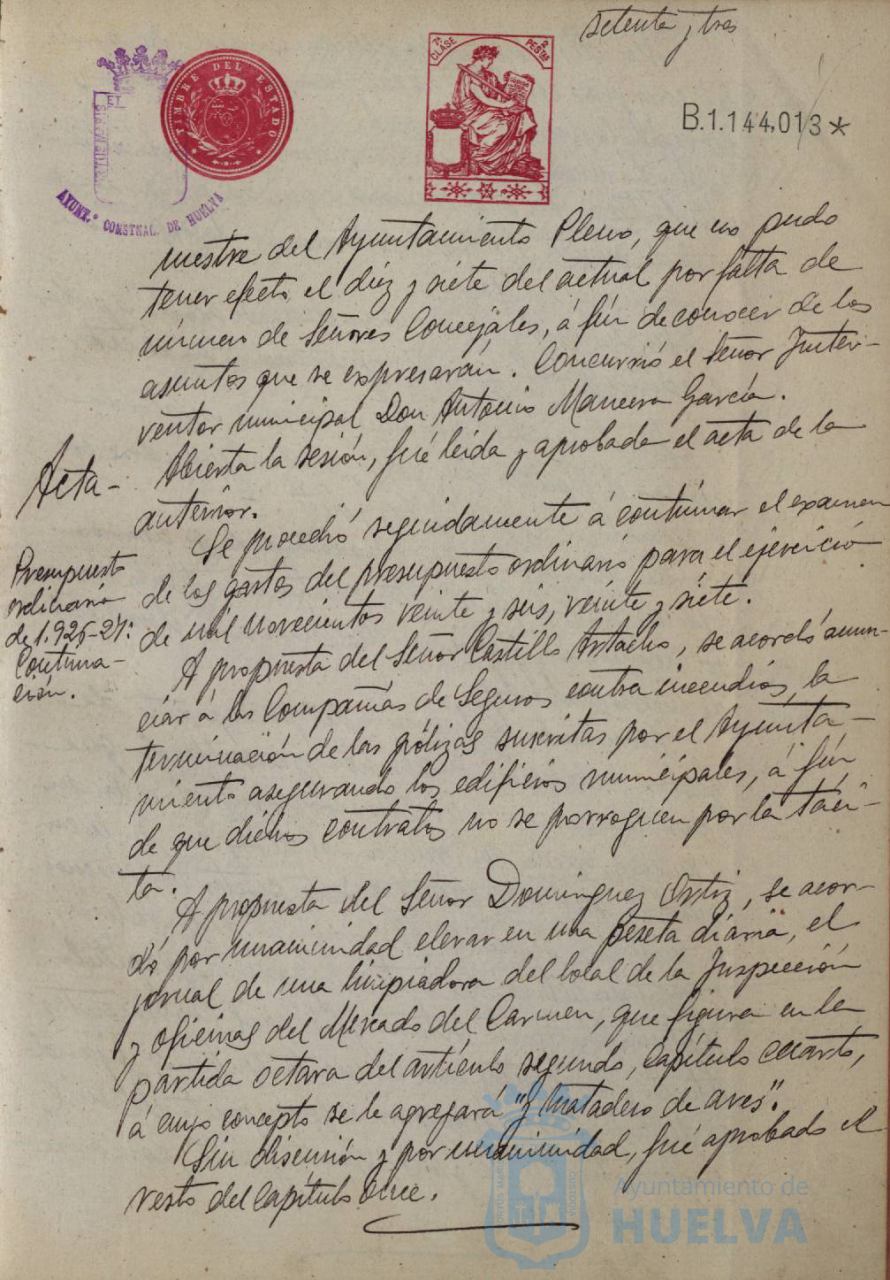 setenta y tres
7ª CLASE
2 PESTAS
TIMBRE DEL ESTADO
B.1.144,013*
AYUNT.º CONSTNAL. DE HUELVA
mestre del Ayuntamiento Pleno, que no pudo
tener efecto el diez y siete del actual por falta de
número de Señores Concejales, á fin de conocer de los
asuntos que se expresarán. Concurrió el Señor Inter-
ventor municipal Don Antonio Mancera García.
Acta-
Abierta la sesión, fué leida y aprobada el acta de la
anterior.
Presupuesto
ordinario
de 1.926-27:
Continua-
ción.
Se procedió seguidamente á continuar el examen
de los gastos del presupuesto ordinario para el ejercicio
de mil novecientos veinte y seis, veinte y siete.
A propuesta del Señor Castillo Astacho, se acordó anun-
ciar á las Compañías de Seguros contra incendios, la
terminación de las pólizas suscritas por el Ayunta-
miento asegurando los edificios municipales, á fin
de que dichos contratos no se prorroguen por la táci-
ta.
A propuesta del Señor Dominguez Ortiz, se acor-
dó por unanimidad elevar en una peseta diaria, el
jornal de una limpiadora del local de la Inspección
y oficinas del Mercado del Carmen, que figura en la
partida octava del artículo segundo, Capítulo cuarto,
á cuyo concepto se le agregará "y Matadero de aves".
Sin discusión y por unanimidad, fué aprobado el
resto del Capítulo once.
Ayuntamiento de
HUELVA